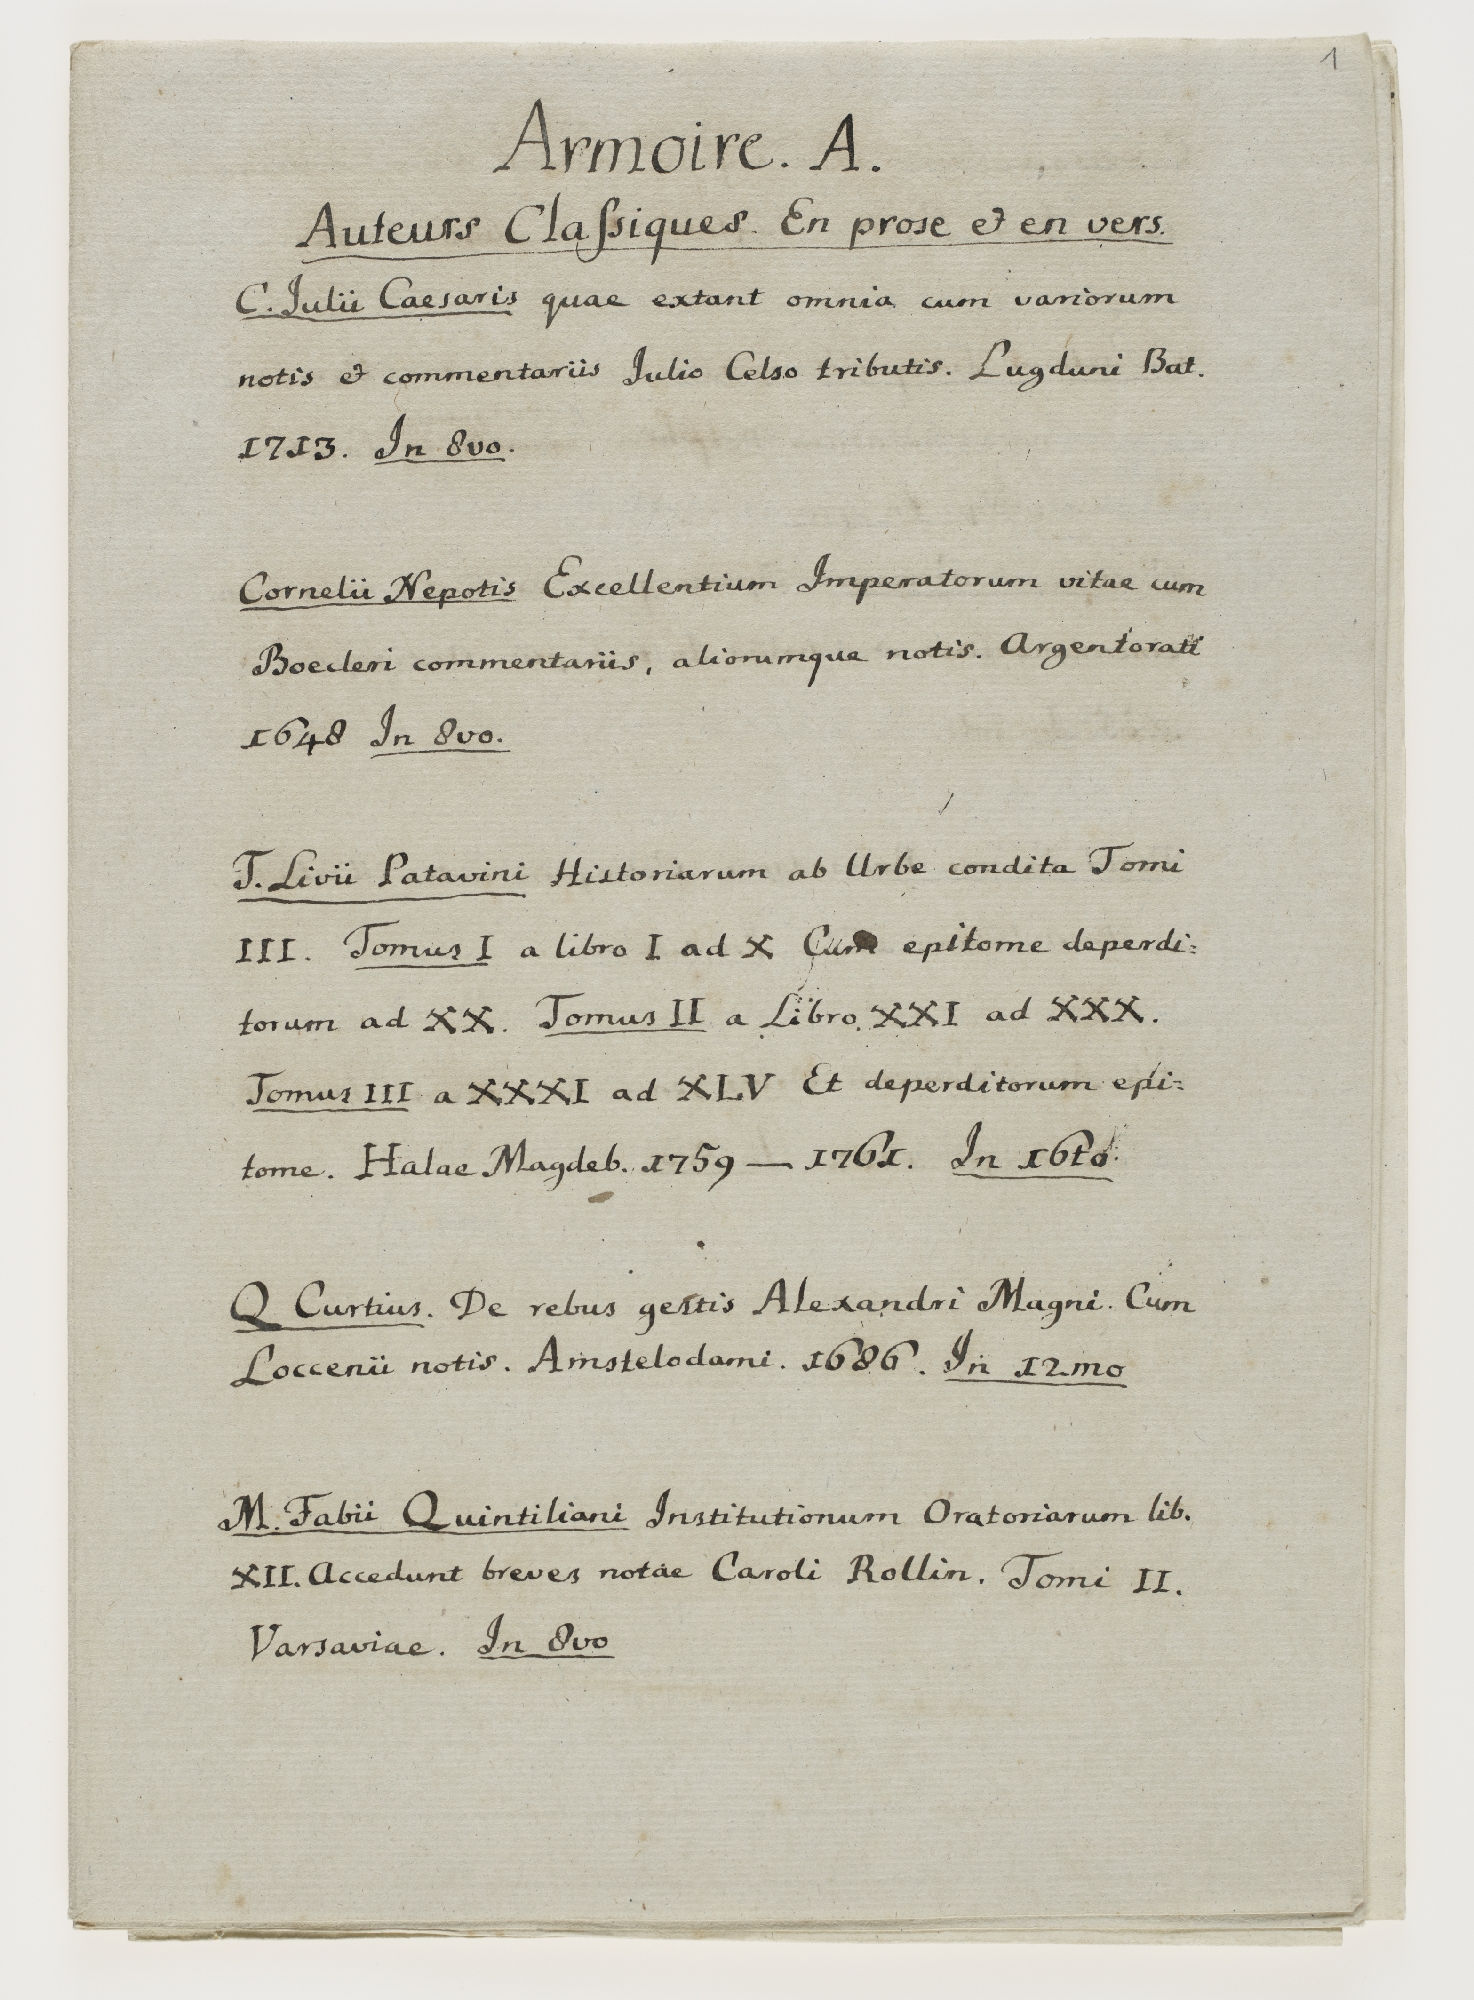 1
Armoire. A.
Auteurs Claſsiques. En prose et en vers.
C. Julii Caesaris quae extant omnia cum variorum
notis et commentariis Julio Celso tributis. Lugduni Bat.
1713. In 8vo.
Cornelii Nepotis Excellentium Imperatorum vitae cum
Boecleri commentariis, aliorumque notis. Argentorati
1648 In 8vo.
T. Livii Patavini Historiarum ab Urbe condita Tomi
III. Tomus I a libro I ad X Cum epitome deperdi=
torum ad XX. Tomus II a Libro XXI ad XXX.
Tomus III a XXXI ad XLV Et deperditorum epi=
tome. Halae Magdeb. 1759 — 1761. In 16to.
Q Curtius. De rebus gestis Alexandri Magni. Cum
Loccenii notis. Amstelodami. 1686. In 12mo
M. Fabii Quintiliani Institutionum Oratoriarum lib.
XII. Accedunt breves notae Caroli Rollin. Tomi II.
Varsaviae. In 8vo